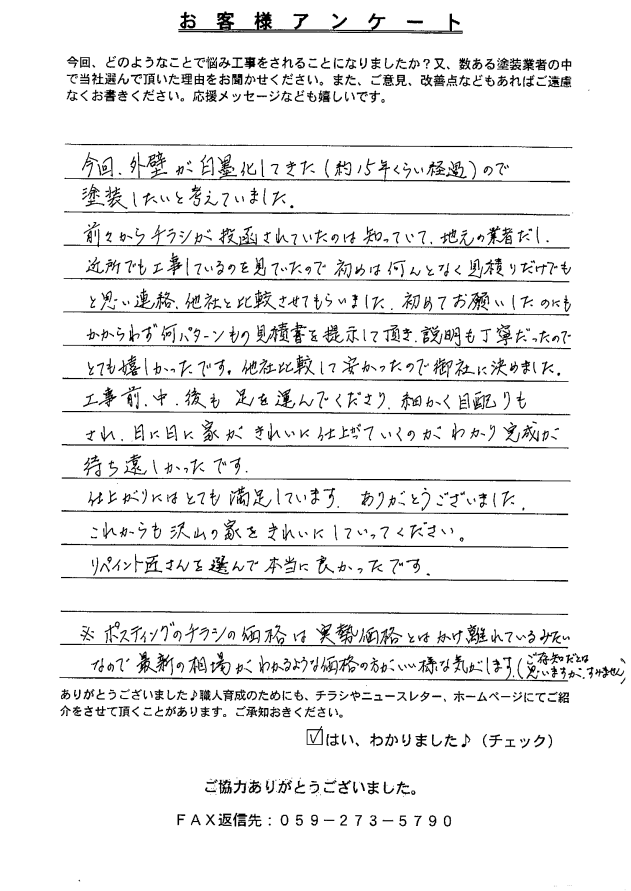 お客様アンケート
今回、どのようなことで悩み工事をされることになりましたか？又、数ある塗装業者の中
で当社選んで頂いた理由をお聞かせください。また、ご意見、改善点などもあればご遠慮
なくお書きください。応援メッセージなども嬉しいです。
今回、外壁が白墨化してきた(約15年くらい経過)ので
塗装したいと考えていました。
前々からチラシが投函されていたのは知っていて、地元の業者だし、
近所でも工事しているのを見ていたので初めは何んとなく見積りだけでも
と思い連絡、他社と比較させてもらいました。初めてお願いしたのにも
かからわず何パターンもの見積書を提示して頂き、説明も丁寧だったので
とても嬉しかったです。他社比較して安かったので御社に決めました。
工事前、中、後も足を運んでくださり、細かく目配りも
され、日に日に家がきれいに仕上がっていくのがわかり完成が
待ち遠しかったです。
仕上がりにはとても満足しています。ありがとうございました。
これからも沢山の家をきれいにしていってください。
リペイント匠さんを選んで本当に良かったです。
※ポスティングのチラシの価格は実勢価格とはかけ離れているみたい
なので最新の相場がわかるような価格の方がいい様な気がします。(ご存知だとは
思いますが、すみません)
ありがとうございました♪職人育成のためにも、チラシやニュースレター、ホームページにてご紹
介をさせて頂くことがあります。ご承知おきください。
☑はい、わかりました♪（チェック）
ご協力ありがとうございました。
ＦＡＸ返信先：０５９－２７３－５７９０